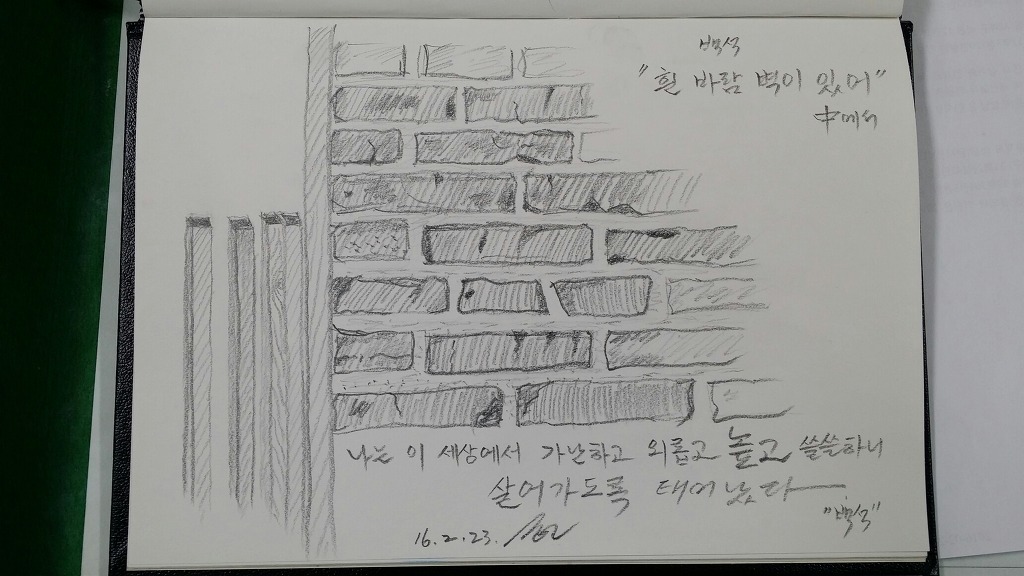 백석
"흰 바람 벽이 있어"
中에서
나는 이 세상에서 가난하고 외롭고 높고 쓸쓸하니
살어가도록 태어났다
"백석"
16.2.23.